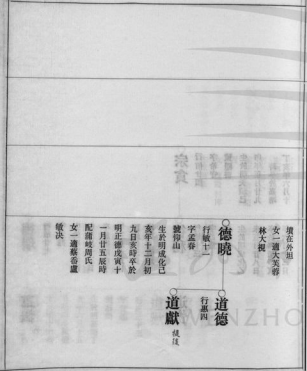 墳在外垣
女一適大芙蓉
林大掜
德曉
行敏十一
字孟春
號仰山
生於明成化己
亥年十二月初
九日亥時卒於
明正德戊寅十
一月廿五辰時
配蒲岐周氏
女一適蔡岙盧
敏決
道德
行惠四
道獻 提後